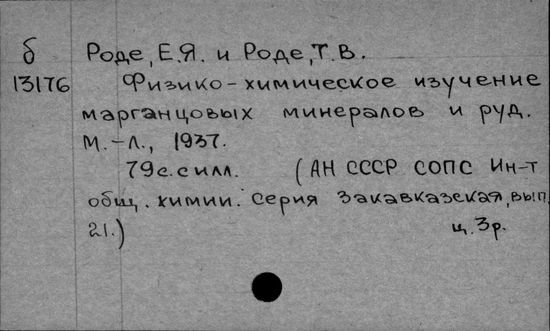 б Роде, Е.Я. и Роде, Т.В.
13176 Физико-химическое изучение
марганцовых минералов и руд.
М.-Л., 1937.
79с. с илл. (АН СССР СОПС Ин-т
общ. химии. Серия Закавказская, вып.
21.) ц. 3р.